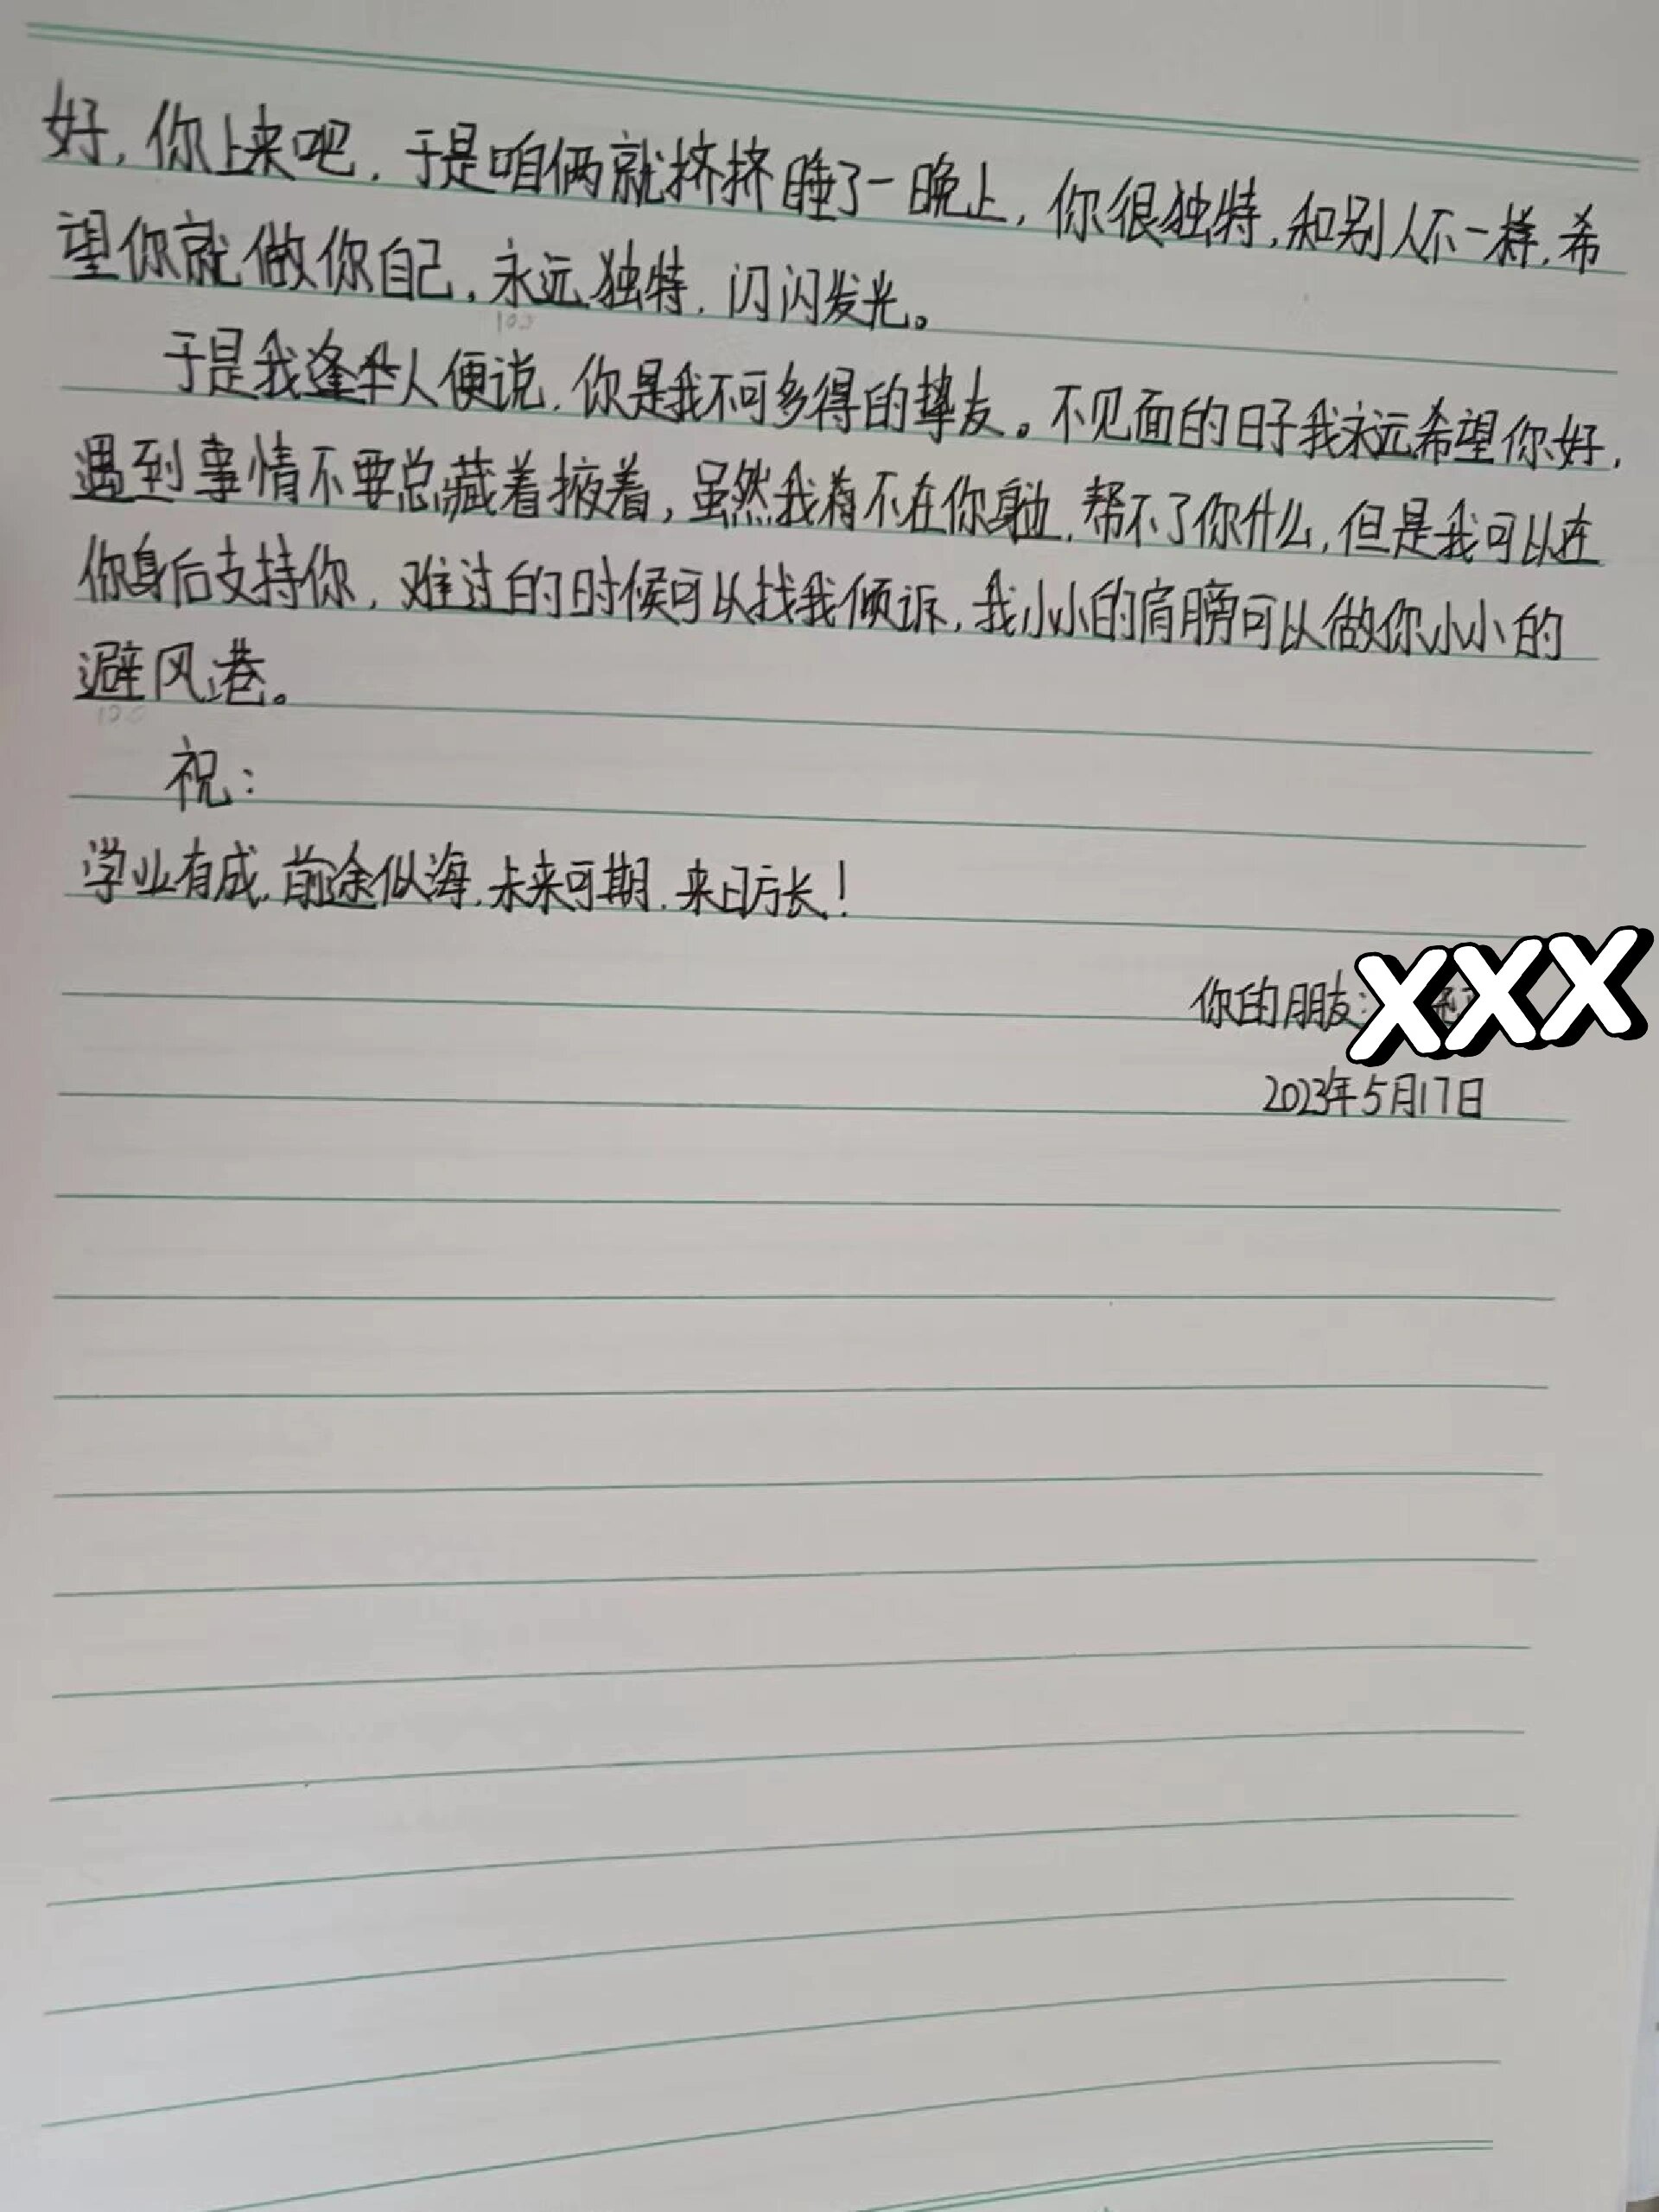 好，你上来吧，于是咱俩就挤挤睡了一晚上，你很独特，和别人不一样，希
望你就做你自己，永远独特，闪闪发光。
于是我逢人便说，你是我不可多得的挚友。不见面的日子我永远希望你好，
遇到事情不要总藏着掖着，虽然我不在你身边，帮不了你什么，但是我可以在
你身后支持你，难过的时候可以找我倾诉，我小小的肩膀可以做你小小的
避风港。
祝：
学业有成，前途似海，未来可期，来日方长！
你的朋友：XXX
2023年5月17日